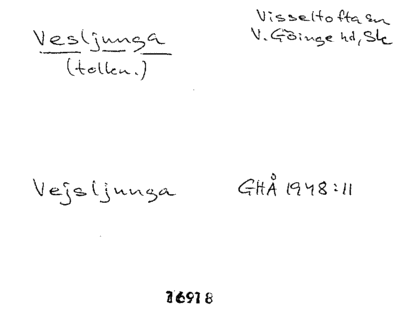 Vesljunga
(tolkn.)
Visseltofta sn
V. Göinge hd, Sk
Vejsljunga
GHÅ 1948:11
16918